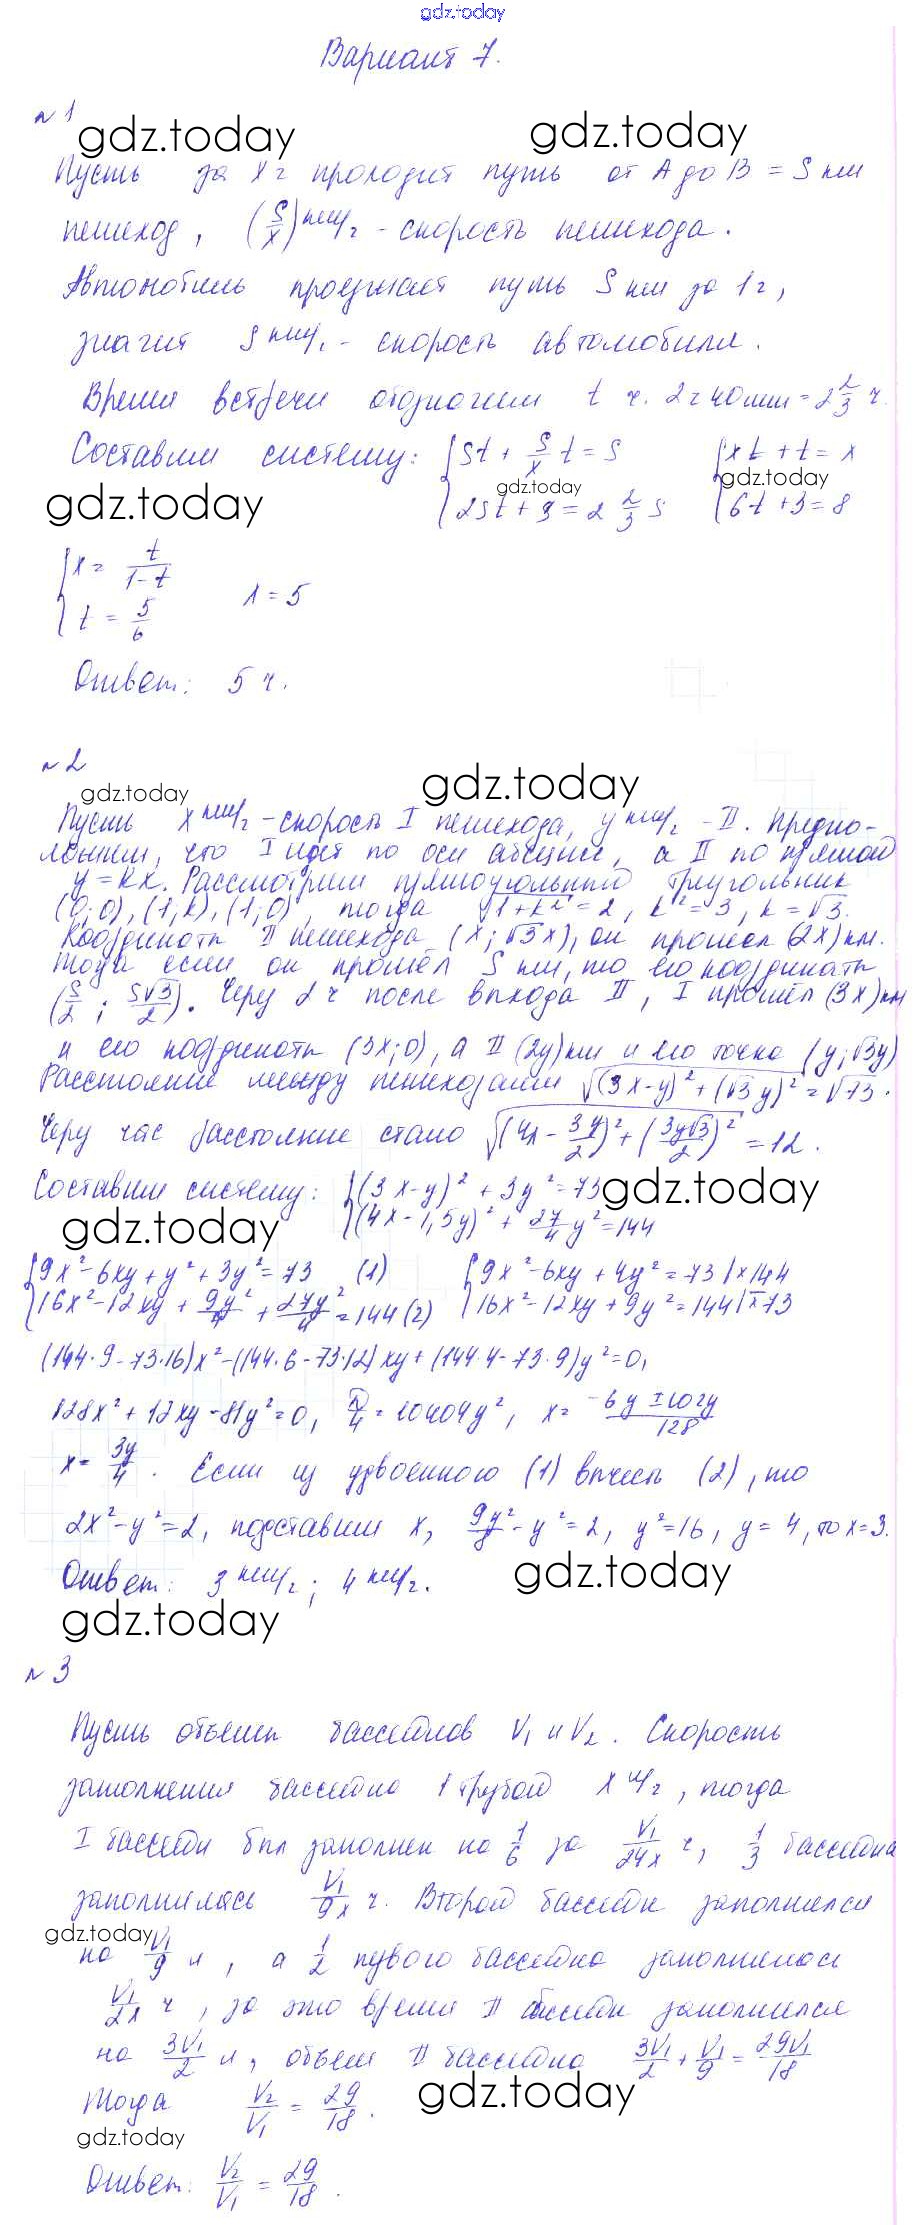 gdz.today
Вариант 7.
№1
gdz.today gdz.today
Пусть за x ч проходит путь от A до B = S км
пешеход, (S/x) км/ч - скорость пешехода.
Автомобиль проезжает путь S км за 1 ч,
значит S км/ч - скорость автомобиля.
Время встречи обозначим t ч. 2ч 40мин = 2 2/3 ч.
Составим систему: { St + S/x t = S { xt + t = x
gdz.today gdz.today gdz.today
{ 2St + 9 = 2 2/3 S { 6t + 3 = 8
{ x = t/(1-t)
{ t = 5/6 x = 5
Ответ: 5 ч.
№2
gdz.today gdz.today
Пусть x км/ч - скорость I пешехода, y км/ч - II. Предпо-
ложим, что I идет по оси абсцисс, а II по прямой
y = kx. Рассмотрим прямоугольный треугольник
(0;0), (1;k), (1;0), тогда √(1+k²) = 2, k² = 3, k = √3.
Координаты II пешехода (x; √3x), он прошел (2x) км.
Тогда если он прошел S км, то его координаты
(S/2; S√3/2). Через 2 ч после выхода II, I прошел (3x) км
и его координаты (3x; 0), а II (2y) км и его точка (y; √3y)
Расстояние между пешеходами √((3x-y)² + (√3y)²) = √73.
Через час расстояние стало √((4x - 3y/2)² + (3y√3/2)²) = 12.
Составим систему: { (3x-y)² + 3y² = 73 gdz.today
gdz.today { (4x - 1,5y)² + 27/4 y² = 144
{ 9x² - 6xy + y² + 3y² = 73 (1) { 9x² - 6xy + 4y² = 73 | × 144
{ 16x² - 12xy + 9y²/4 + 27y²/4 = 144 (2) { 16x² - 12xy + 9y² = 144 | × 73
(144·9 - 73·16)x² - (144·6 - 73·12)xy + (144·4 - 73·9)y² = 0,
128x² + 12xy - 81y² = 0, D/4 = 10404y², x = (-6y ± 102y)/128
x = 3y/4. Если из удвоенного (1) вычесть (2), то
2x² - y² = 2, подставим x, 9y²/8 - y² = 2, y² = 16, y = 4, то x = 3.
Ответ: 3 км/ч; 4 км/ч. gdz.today
gdz.today
№3
Пусть объемы бассейнов V₁ и V₂. Скорость
заполнения бассейна 1 трубой x л/ч, тогда
I бассейн был заполнен на 1/6 за V₁/24x ч, 1/3 бассейна
заполнилась V₁/9x ч. Второй бассейн заполнился
gdz.today
на V₁/9 л, а 1/2 первого бассейна заполнилась
V₁/2x ч, за это время II бассейн заполнился
на 3V₁/2 л, объем II бассейна 3V₁/2 + V₁/9 = 29V₁/18
Тогда V₂/V₁ = 29/18. gdz.today
gdz.today
Ответ: V₂/V₁ = 29/18.